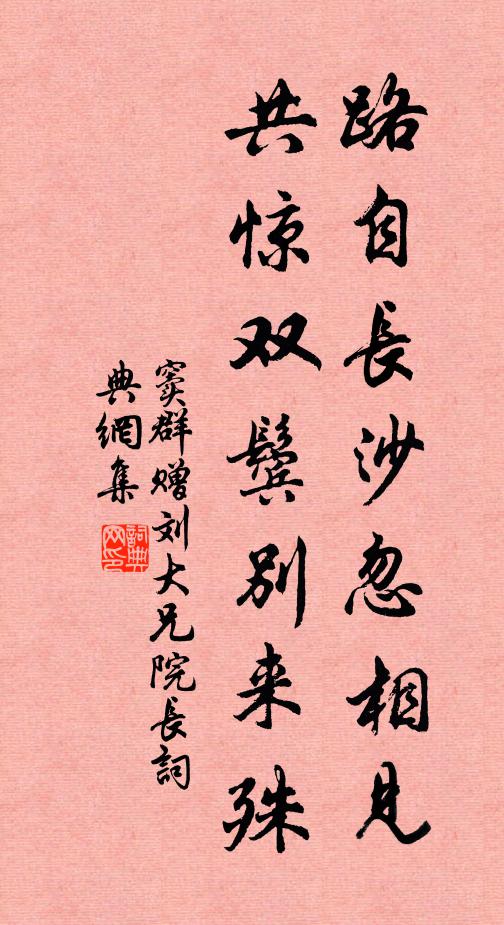 路自長沙忽相见
共惊双鬓别来殊
窦群赠刘大兄院長詞
典網集
詞典网印